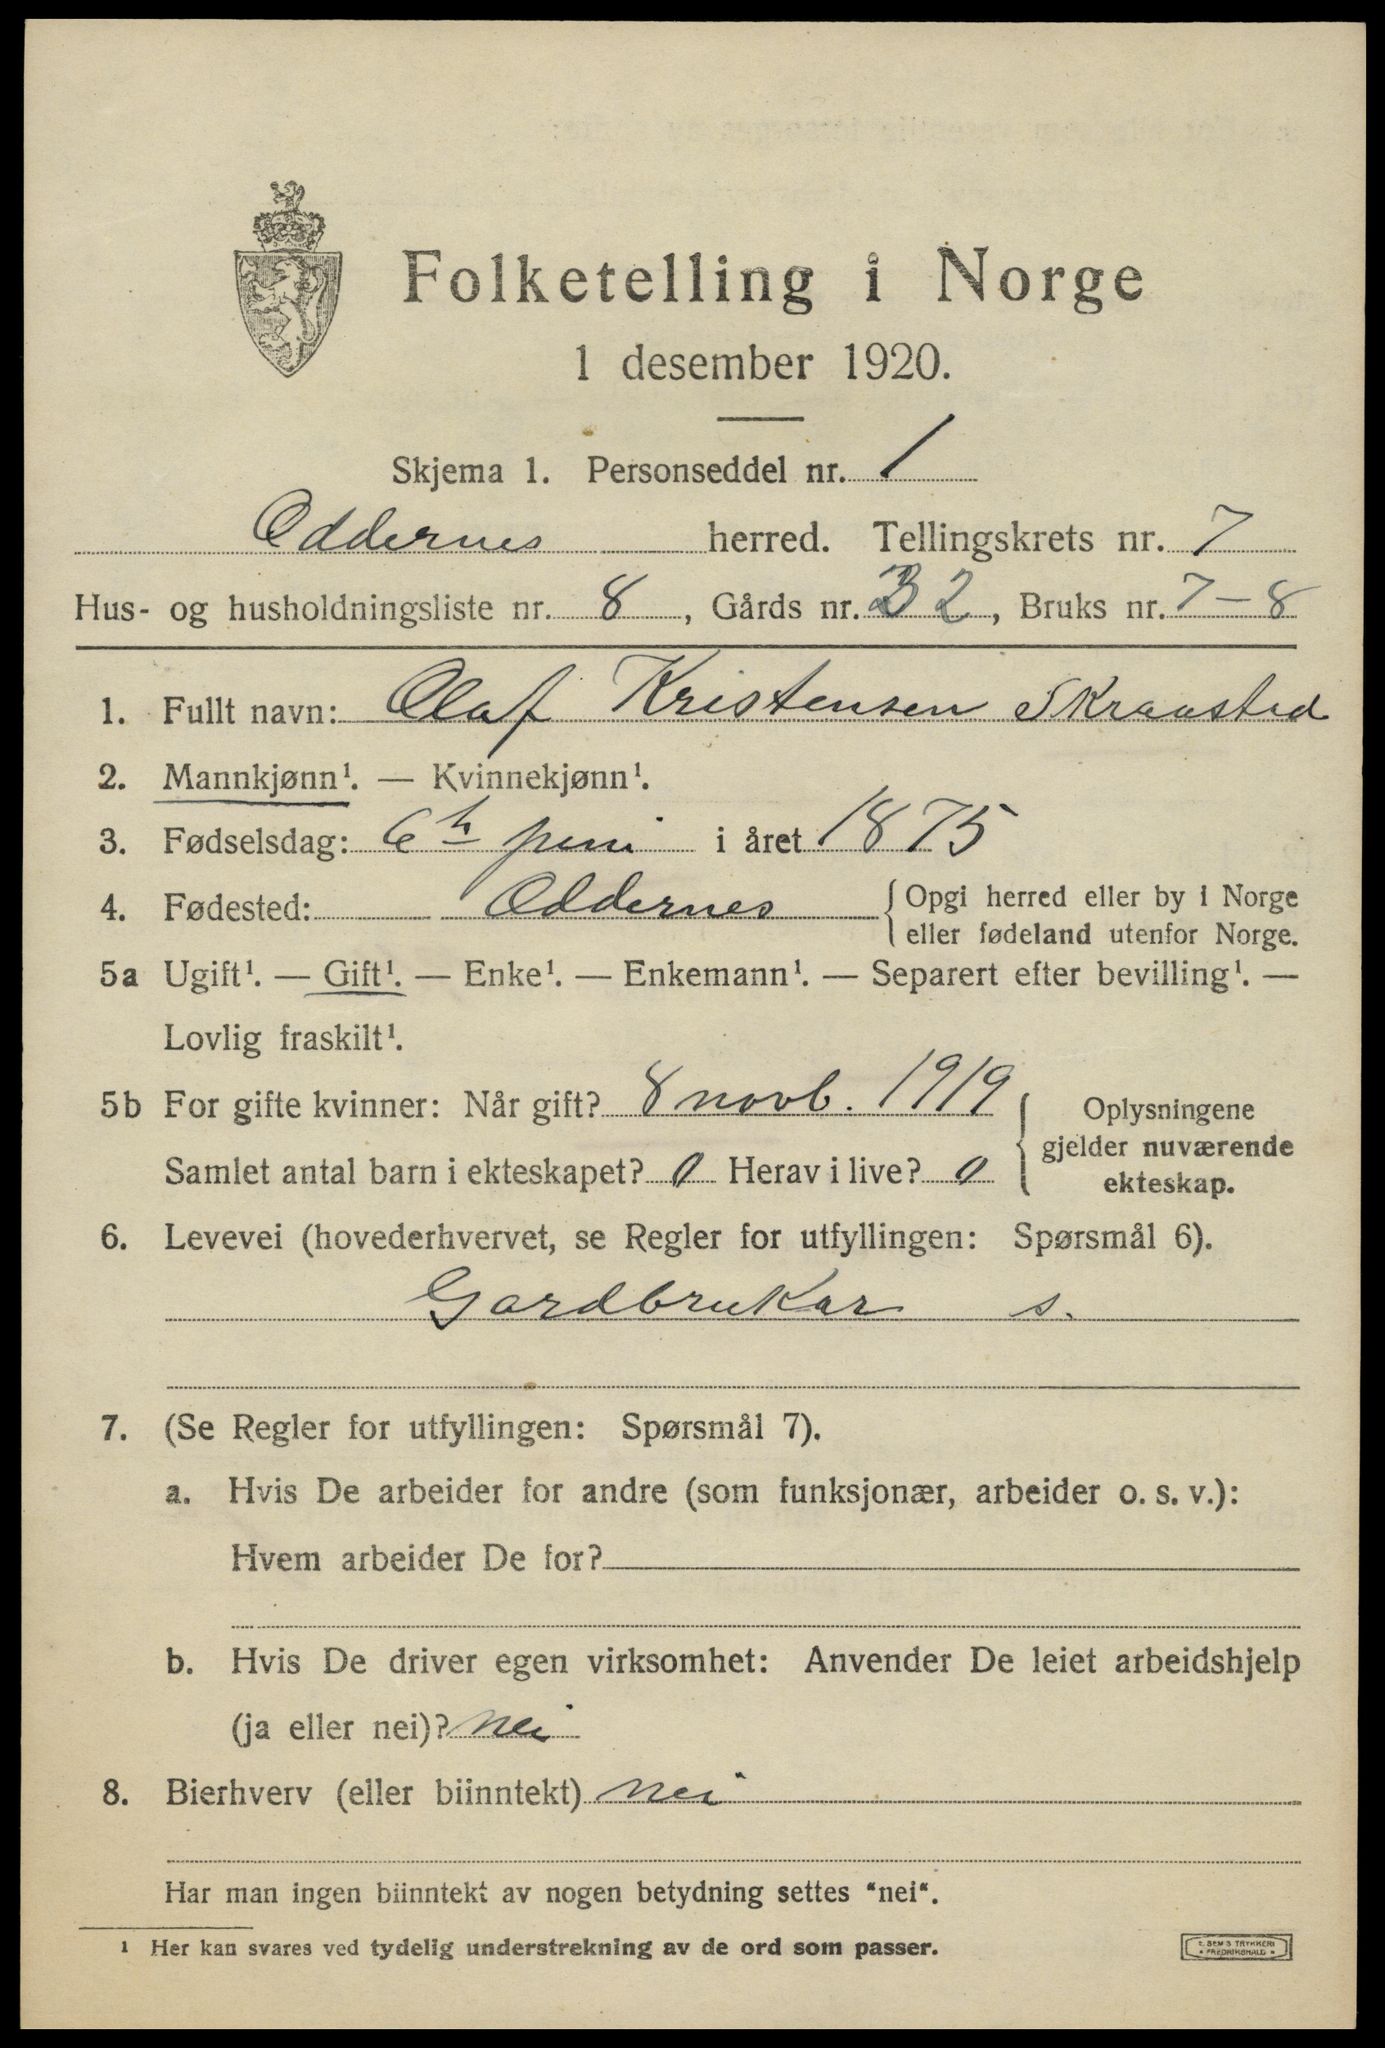 Folketelling i Norge
1 desember 1920.
Skjema 1. Personseddel nr. 1
Oddernes herred. Tellingskrets nr. 7
Hus- og husholdningsliste nr. 8, Gårds nr. 32, Bruks nr. 7-8
1. Fullt navn: Olaf Kristensen
2. Mannkjønn¹. — Kvinnekjønn¹.
3. Fødselsdag: 6 juni i året 1875
4. Fødested: Oddernes {Opgi herred eller by i Norge
eller fødeland utenfor Norge.
5a Ugift¹. — Gift¹. — Enke¹. — Enkemann¹. — Separert efter bevilling¹. —
Lovlig fraskilt¹.
5b For gifte kvinner: Når gift? 8 novb. 1919
Samlet antal barn i ekteskapet? 0 Herav i live? 0
Oplysningene
gjelder nuværende
ekteskap.
6. Levevei (hovederhvervet, se Regler for utfyllingen: Spørsmål 6).
Gardbrukar s.
7. (Se Regler for utfyllingen: Spørsmål 7).
a. Hvis De arbeider for andre (som funksjonær, arbeider o. s. v.):
Hvem arbeider De for?
b. Hvis De driver egen virksomhet: Anvender De leiet arbeidshjelp
(ja eller nei)? nei
8. Bierhverv (eller biinntekt) nei
Har man ingen biinntekt av nogen betydning settes "nei".
¹ Her kan svares ved tydelig understrekning av de ord som passer.
E. SEM'S TRYKKERI
• FREDRIKSHALD •